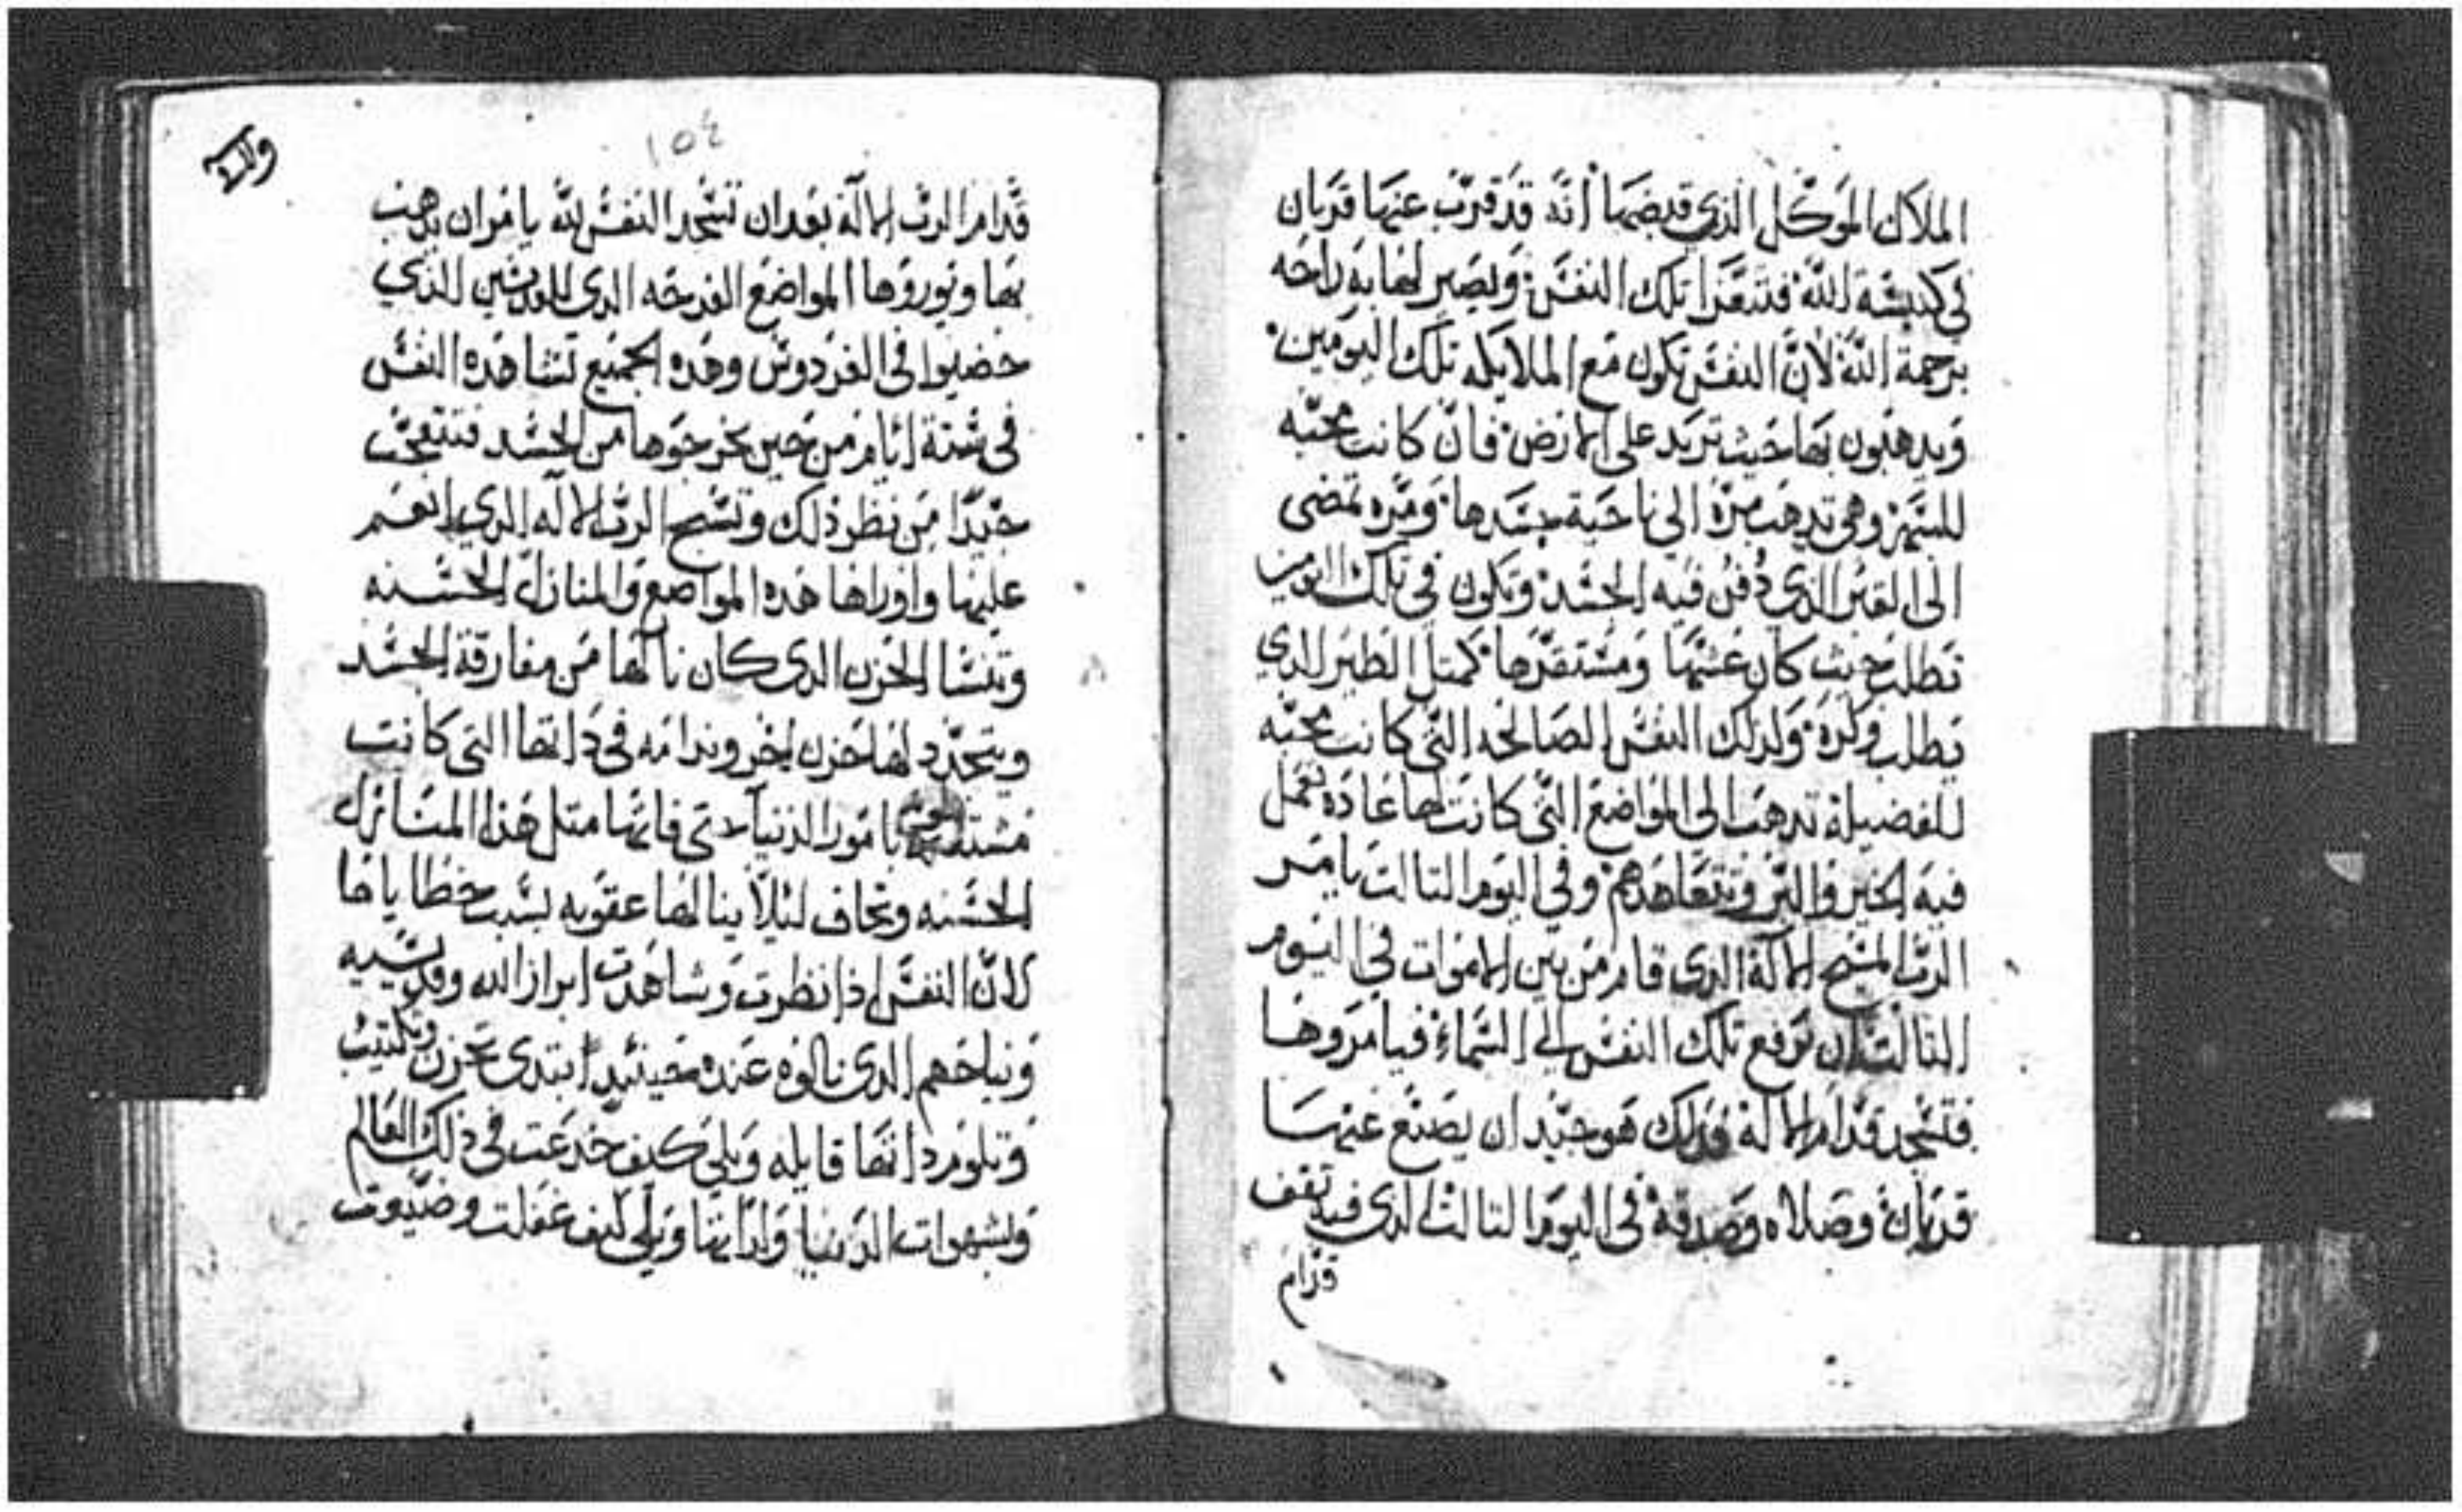 الملاك الموكل الذي قبضها انه قد قرب عنها قربان
في كنيسة الله فتتعزا تلك النفس ويصير لها به راحه
برحمة الله لان النفس تكون مع الملايكه تلك اليومين
ويدهبون بها حيث تريد على الارض فان كانت محبه
للجسد وهي تدهب مرة الى ناحية جسدها ومره تمضى
الى القبر الذي دفن فيه الجسد وتكون في تلك اليومين
تطلب حيث كان عشها ومستقرها كمتل الطير الدي
يطلب وكره ولدلك النفس الصالحه التي كانت محبه
للفضيلة تدهب الى المواضع التي كانت لها عاده تعمل
فيه الخير والبر وتتعاهدهم وفي اليوم التالت يامر
الرب المسيح الالاة الدى قام من بين الاموات في اليوم
التالت ان ترفع تلك النفس الى السماء فيامروها
فتسجد قدام الالاة فدلك هو جيد ان يصنع عنها
قربان وصلاه وصدقة في اليوم التالت الدى فيه تقف
قدام
١٥٤
قدام الرب الالاة بعد ان تسجد النفس لله يامر ان يدهب
بها ويوروها المواضع الفرحه الدى للقديسين الذي
حضيوا في الفردوس وهده الجميع تشاهده النفس
في ستة ايام من حين يخرجوها من الجسد فتتعجب
جيدا من نظر ذلك وتسبح الرب الالاه الدي انعم
عليها واوراها هده المواضع والمنازل الحسنه
وتنسا الحزن الدى كان نالها من مفارقة الجسد
ويتجدد لها حزن اخر وندامه في داتها التي كانت
بامور الدنيا حتى فاتها متل هدا المنازل
الحسنه وتخاف ليلا ينالها عقوبه بسبب خطاياها
لان النفس اذا نظرت وشاهدت ابرار الله وقديسيه
ونياحهم الدى نالوه عنده فحينئيدا تبتدى تحزن وتكتيب
وتلوم داتها قايله ويلي كيف خدعت في ذلك العالم
وبشهوات الدنيا ولداتها ويلي كيف غفلت وضيعت